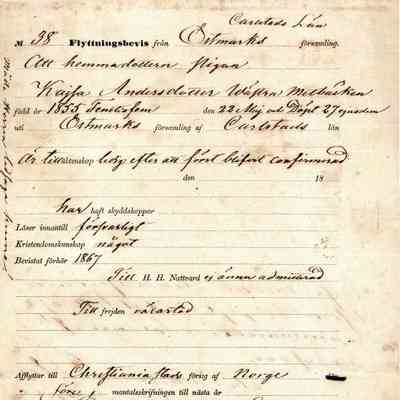 Carlstads Län
№ 38 Flyttningsbevis från Östmarks församling.
Att hemmadottern pigan
Kajsa Andersdotter Wästra Mulltjärn
född år 1855 Femtiofem den 22 Maj och Döpt 27 ejusdem
uti Östmarks församling af Carlstads län
Är till äktenskap ledig efter att först blifvit confirmerad
den 18
har haft skyddskoppor
Läser innantill försvarligt
Kristendomskunskap något
Bevistat förhör 1867
Till H. H. Nattvard ej ännu admitterad
Till frejden välartad
Afflyttar till Christiania stads förs:g af Norge
före mantalsskrifningen till nästa år